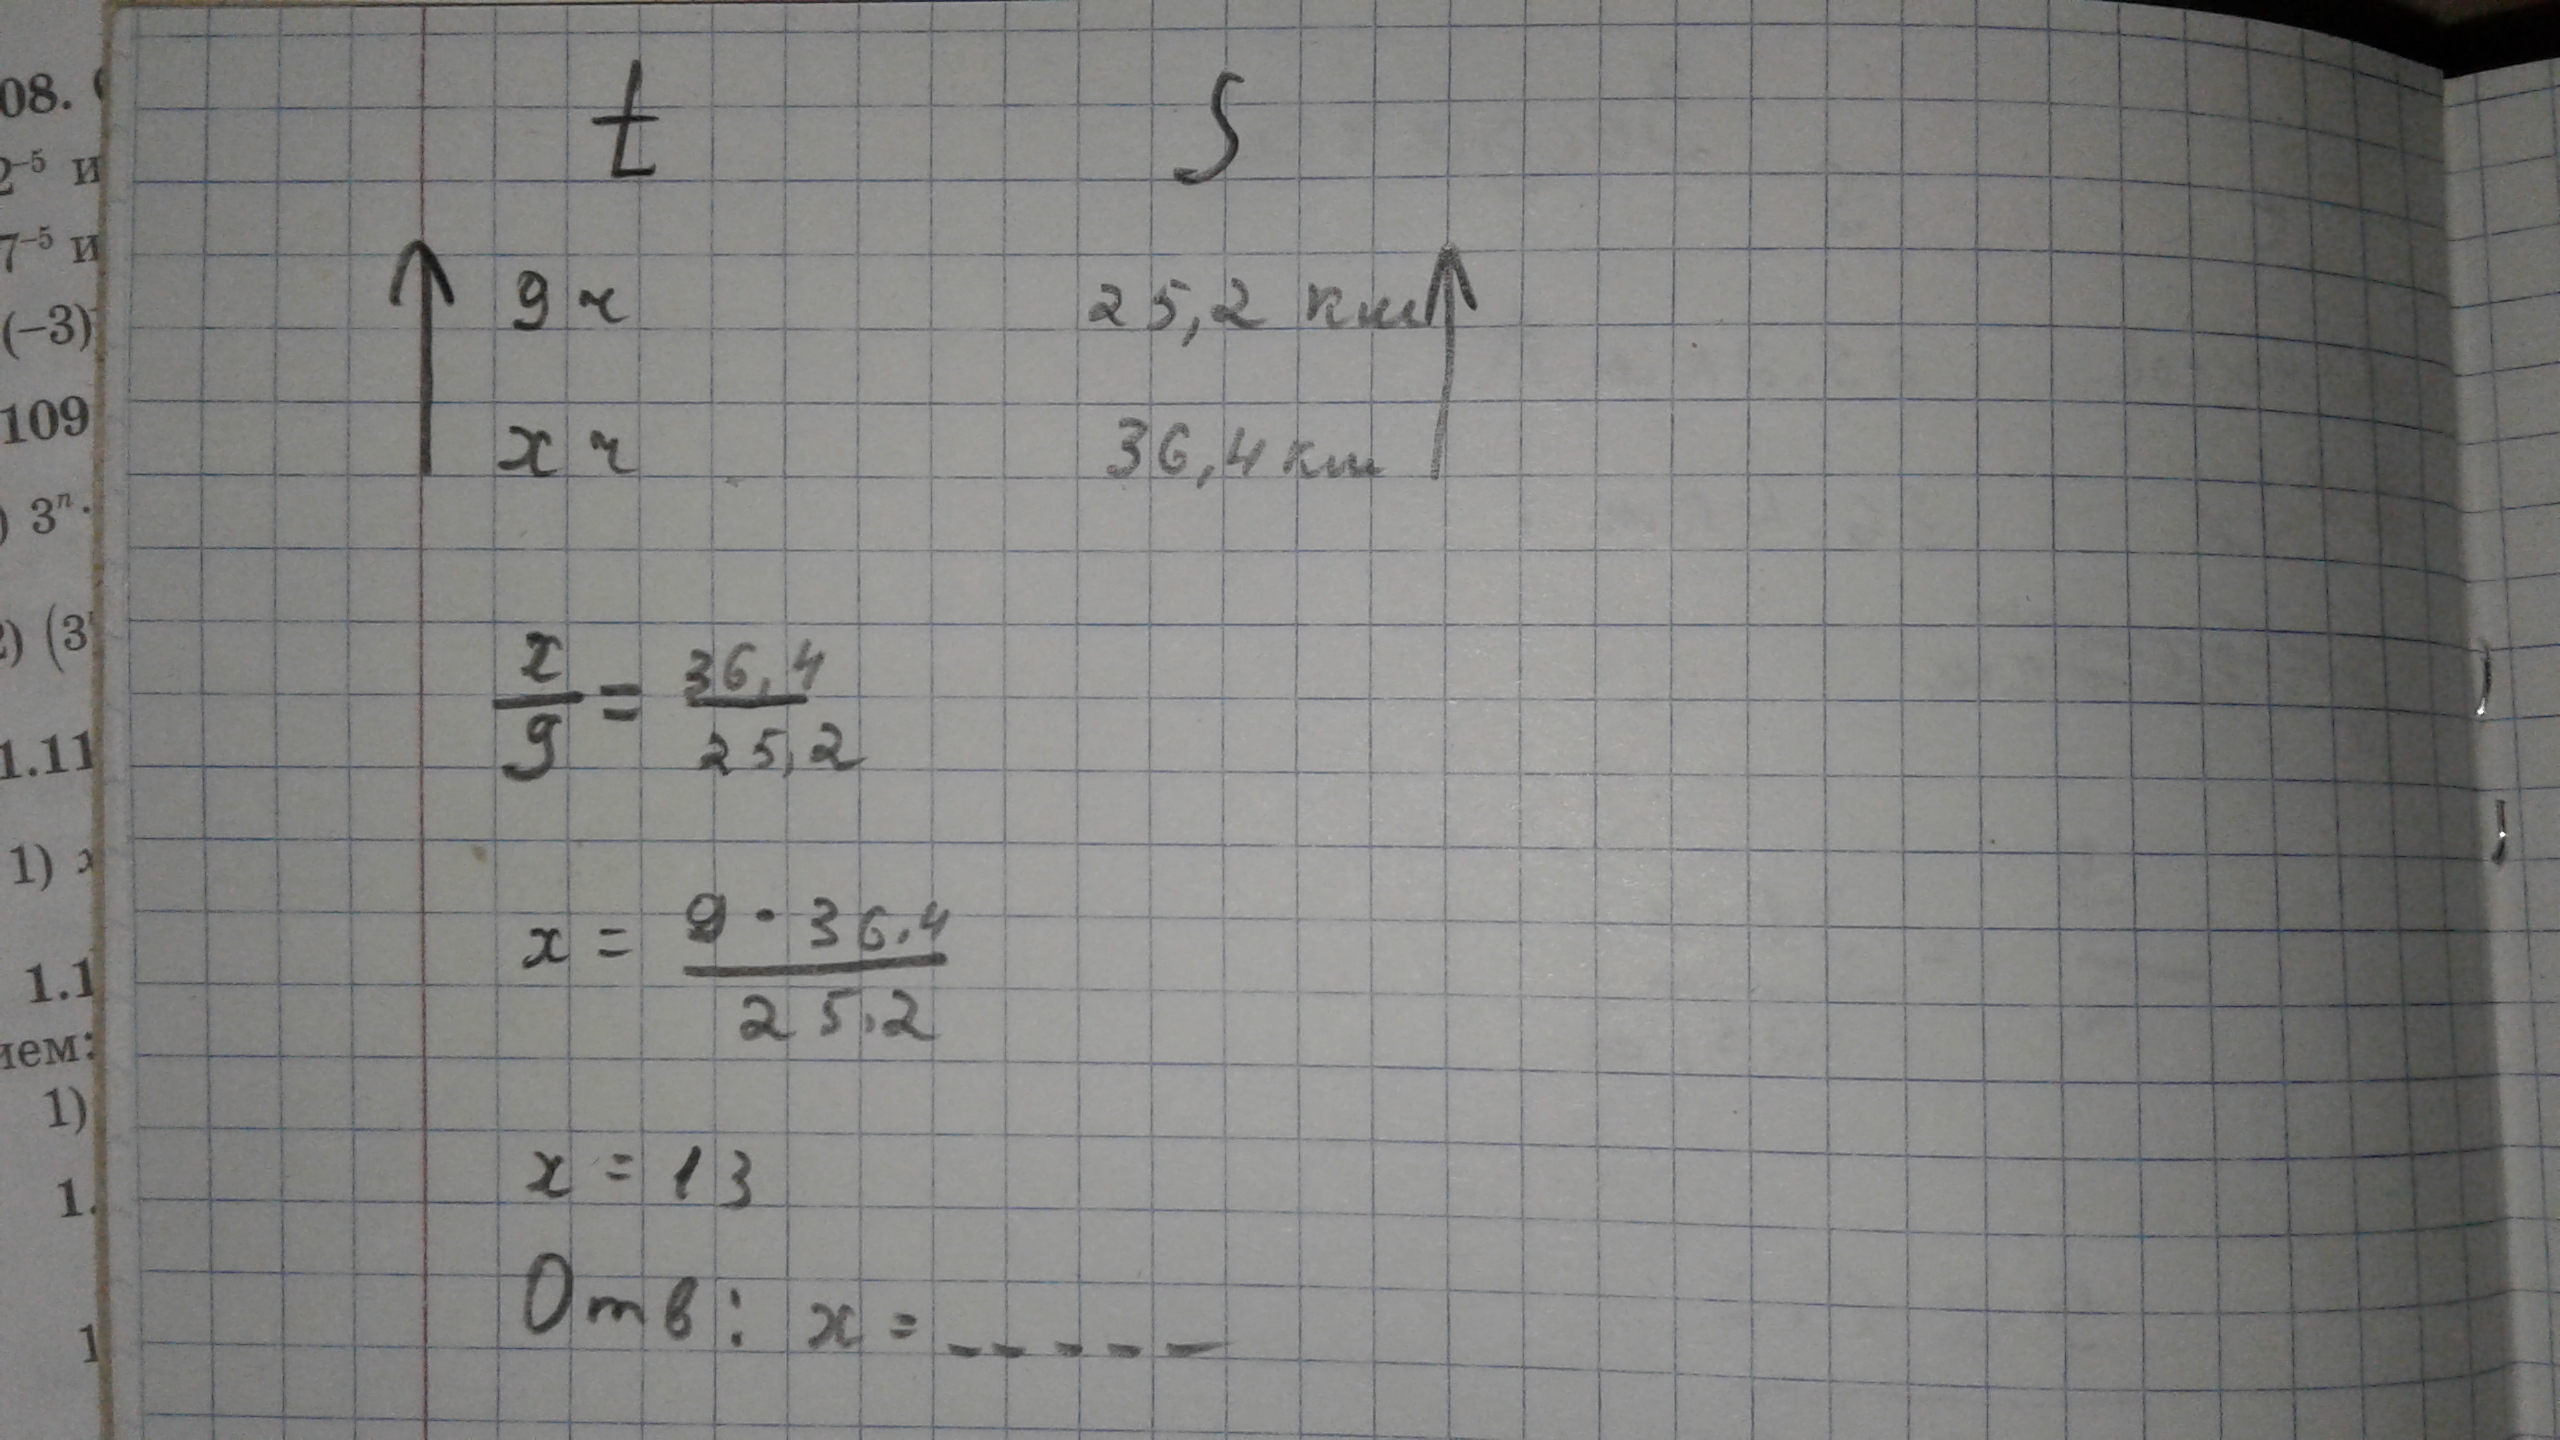 08.
2⁻⁵ и
7⁻⁵ и
(–3)
109
) 3ⁿ·
2) (3
1.11
1) x
1.1
ием:
1)
1.
1
t S
9 ч 25,2 км
x ч 36,4 км
x/9 = 36,4/25,2
x = 9 · 36,4/25,2
x = 13
Отв: x = _ _ _ _ _